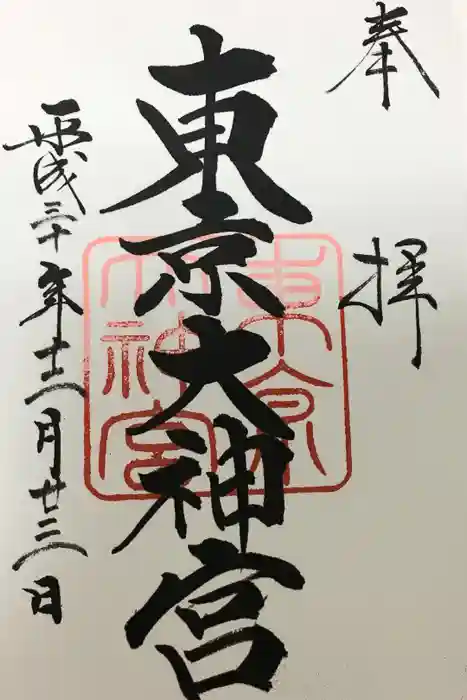 奉拝
東京大神宮
平成三十年十二月廿三日
東京大神宮